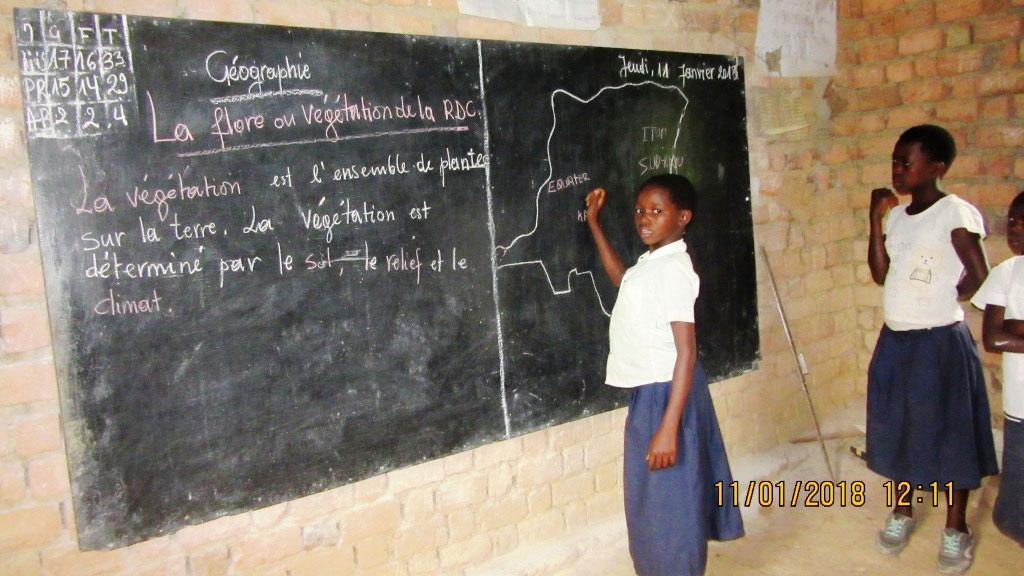 I G F T
Ins 17 16 33
PR 15 14 29
AB 2 2 4
Géographie
La flore ou végétation de la RDC.
La végétation est l'ensemble de plantes
sur la terre. La végétation est
déterminé par le sol, le relief et le
climat.
Jeudi, 11 Janvier 2018
EQUATER
11/01/2018 12:11